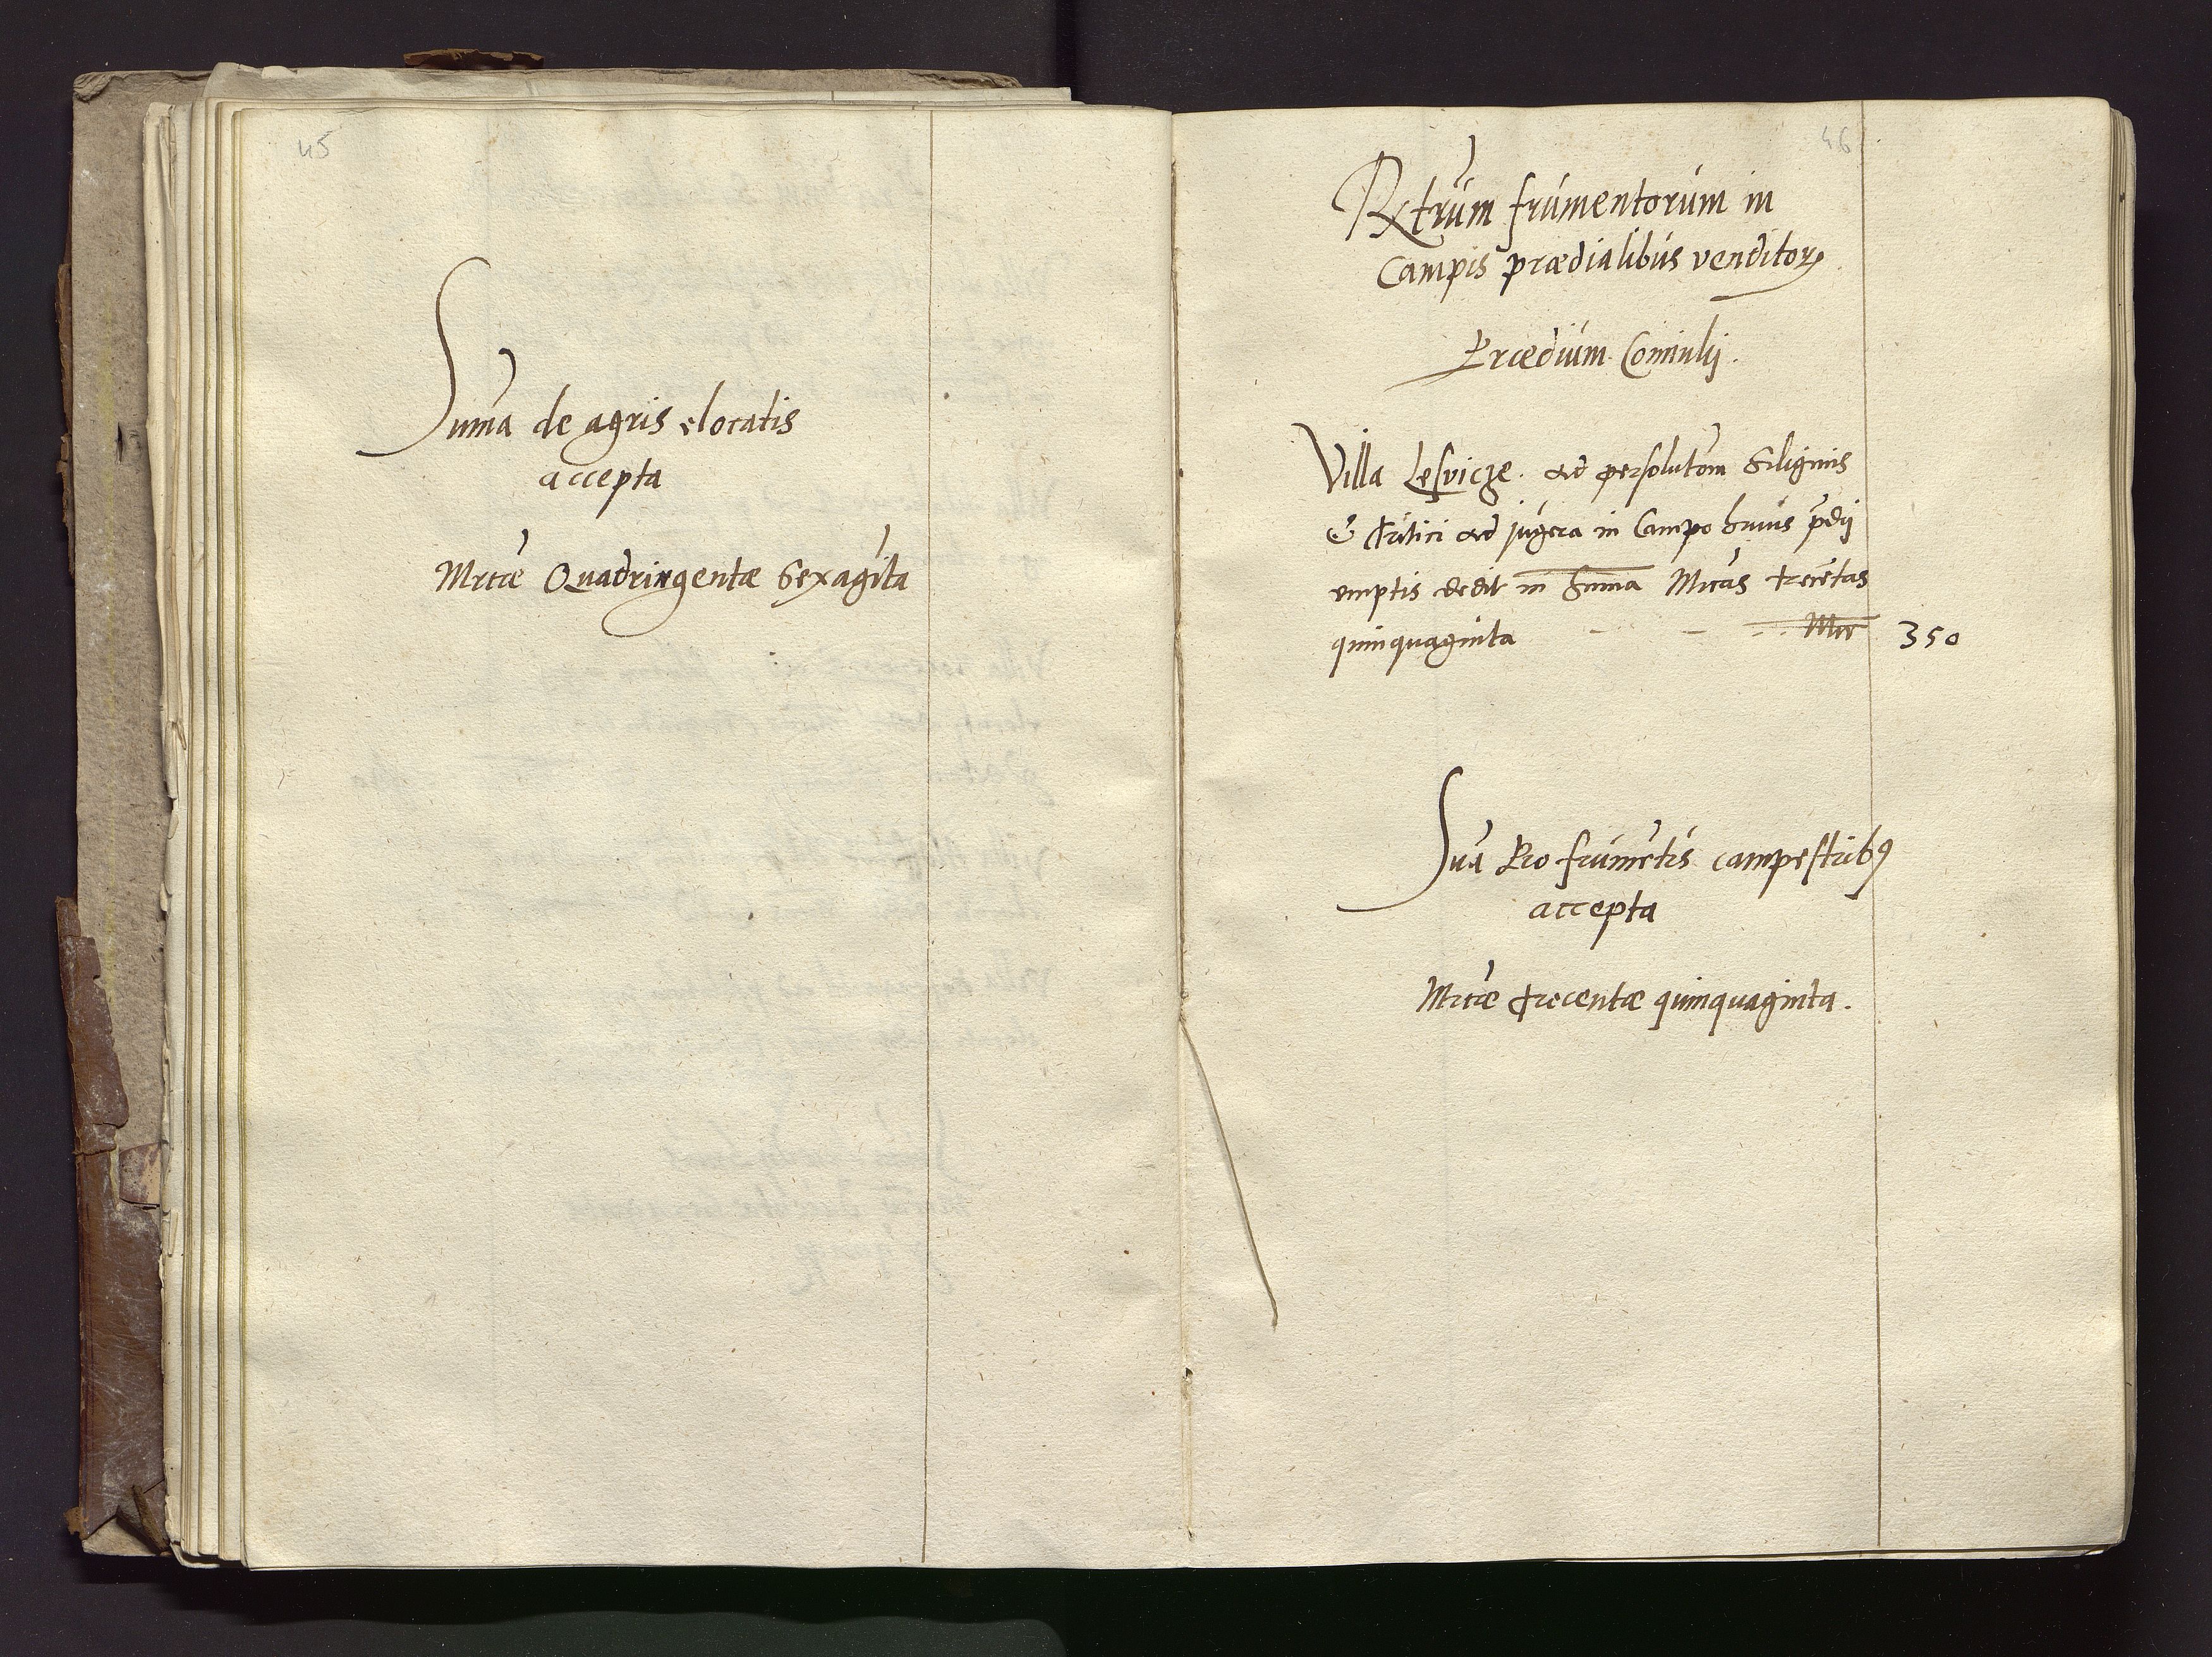 45
Suma de agris elocatis
accepta
Mrcae Quadringentae Sexagita
46
Rxtrum frumentorum in
Campis praedialibus venditor
Praedium Comiulij.
Villa Lesvicze. ad persolutom Siliginis
& Tritici ad jugera in Campo huius pdij
emptis dedit in Suma Mrcas trecetas
quinquaginta - - - Mrc 350
Sua Pro frumetis campestrib9
accepta
Mrcae Trecentae quinquaginta.